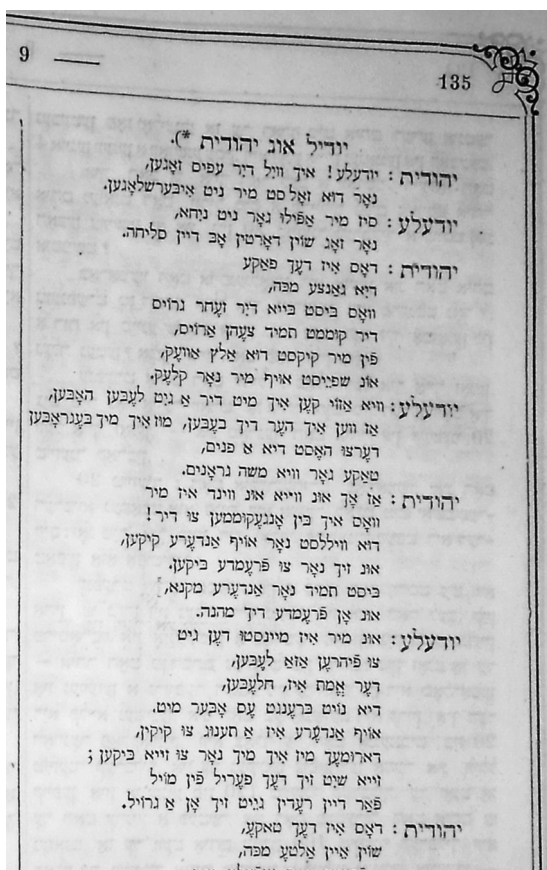 9
135
יודיל אונ יהודית *).
יהודית: יודעלע! איך וויל דיר עפיס זאָגען,
נאָר דוא זאָלסט מיר ניט איבּערשלאָגען.
יודעלע: סיז מיר אַפילו גאָר ניט ניחא,
נאָר זאָג שוין דאָרטין אָבּ דיין סליחה.
יהודית: דאָס איז דעך פּאַקע
דיא גאַנצע מכּה,
וואָס בּיסט בּייא דיר זעהר גרויס
דיר קוממט תמיד צעהן אַרויס,
פין מיר קיקסט דוא אַלץ אַוועק,
אונ שפּייסט אויף מיר נאָר קלעק.
יודעלע: וויא אַזוי קען איך מיט דיר אַ גיט לעבּען האָבּען,
אַז ווען איך הער דיך בּעבּען, מוז איך מיך בּעגראָבּען
דערצו האָסט דיא אַ פּנים,
טאַקע גאָר וויא משה גראַנים.
יהודית: אָז אָך אונ ווייא אונ ווינד איז מיר
וואָס איך בּין אָנגעקוממען צו דיר!
דוא ווילסט נאָר אויף אַנדערע קיקען,
אונ זיך נאָר צו פרעמדע בּיקען,
בּיסט תמיד נאָר אַנדערע מקנא,
אונ אָן פרעמדע דיך מהנה.
יודעלע: אונ מיר איז מיינסטו דען ניט
צו פיהרען אַזאַ לעבּען,
דער אמת איז, חלעבּען,
דיא נויט בּרענגט עס אָבּער מיט.
אויף אַנדערע איז אַ תענוג צו קיקין,
דאַרומעך מיז איך מין נאָר צו זייא בּיקען;
זייא שיט זיך דעך פּעריל פין מויל
פאַר דיין רעדין גייט זיך אָן אַ גרויל.
יהודית: דאָס איז דעך טאַקע,
שוין איין אַלטע מכּה,